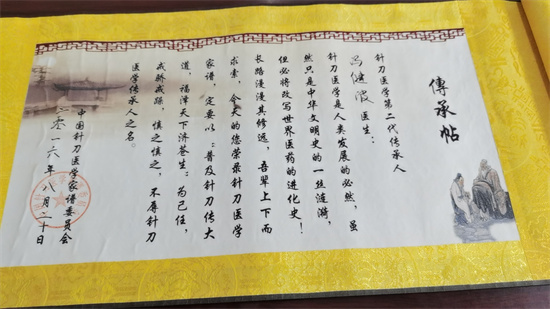 傳承帖
针刀医学第二代传承人
冯健波 医生：
针刀医学是人类发展的必然，虽
然只是中华文明史的一丝涟漪，
但必将改写世界医药的进化史！
长路漫漫其修远，吾辈上下而
求索，今天的您荣录针刀医学
家谱，定要以：“普及针刀传大
道，福泽天下济苍生”为己任，
戒骄戒躁，慎之慎之，不辱针刀
医学传承人之名。
中国针刀医学家谱委员会
二零一六年八月二十日